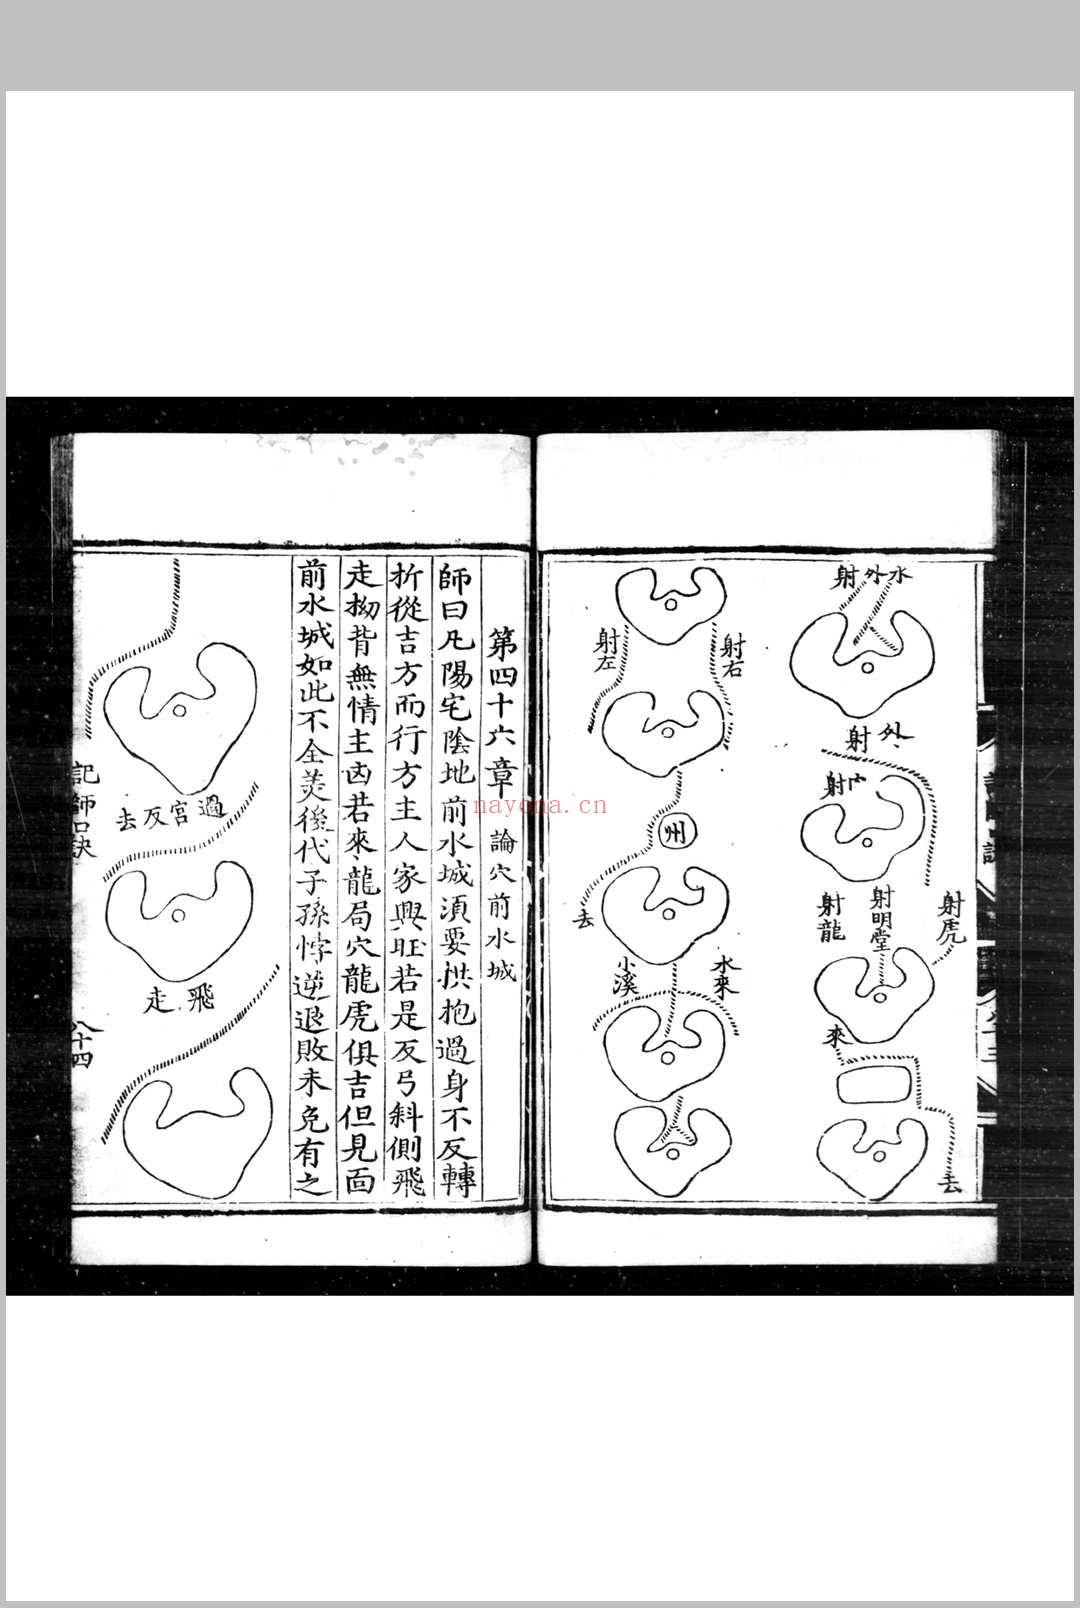 水外射
外射
内射
射虎
射明堂
射龍
來
去
射右
射左
州
去
水來
小溪
第四十六章 論穴前水城
師曰凡陽宅陰地前水城須要拱抱過身不反轉
折從吉方而行方主人家興旺若是反弓斜側飛
走拗背無情主凶若來龍局穴龍虎俱吉但見面
前水城如此不全美後代子孫悖逆退敗未免有之
過宮反去
飛走
記師口訣
八十四
nayona.cn